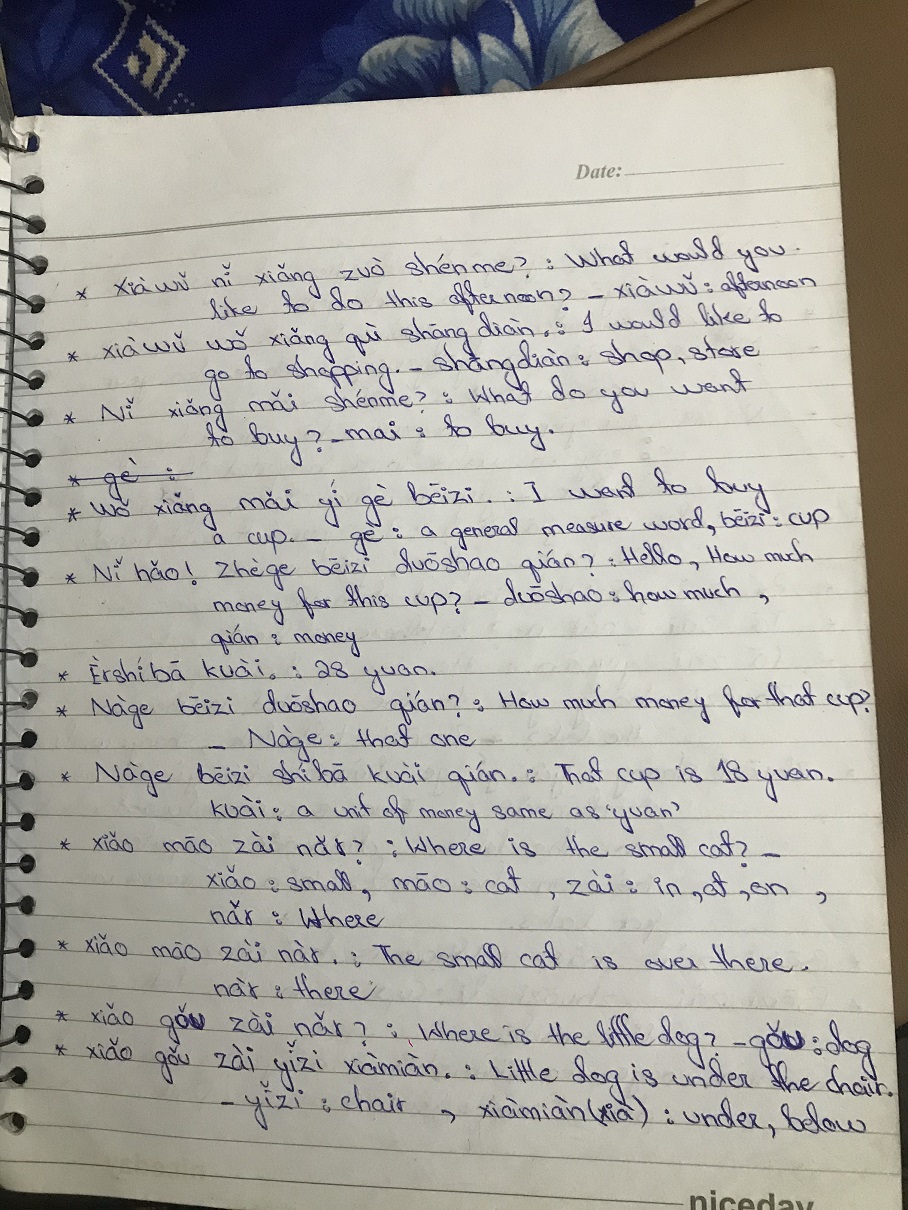 Date:
* Xiàwǔ nǐ xiǎng zuò shénme? : What would you
like to do this afternoon? – xiàwǔ : afternoon
* xiàwǔ wǒ xiǎng qù shāngdiàn. : I would like to
go to shopping. – shāngdiàn : shop, store
* Nǐ xiǎng mǎi shénme? : What do you want
to buy? – mai : to buy.
* gè :
* Wǒ xiǎng mǎi yí gè bēizi. : I want to buy
a cup. – gè : a general measure word, bēizi : cup
* Nǐ hǎo! Zhège bēizi duōshao qián? : Hello, How much
money for this cup? – duōshao : how much ,
qián : money
* Èrshíbā kuài. : 28 yuan.
* Nàge bēizi duōshao qián? : How much money for that cup?
– Nàge : that one
* Nàge bēizi shíbā kuài qián. : That cup is 18 yuan.
kuài : a unit of money same as 'yuan'
* xiǎo māo zài nǎr? : Where is the small cat? –
xiǎo : small, māo : cat , zài : in, at, on ,
nǎr : Where
* xiǎo māo zài nàr. : The small cat is over there.
nàr : there
* xiǎo gǒu zài nǎr? : Where is the little dog? – gǒu : dog
* xiǎo gǒu zài yǐzi xiàmiàn. : Little dog is under the chair.
– yǐzi : chair , xiàmiàn (xià) : under, below
niceday